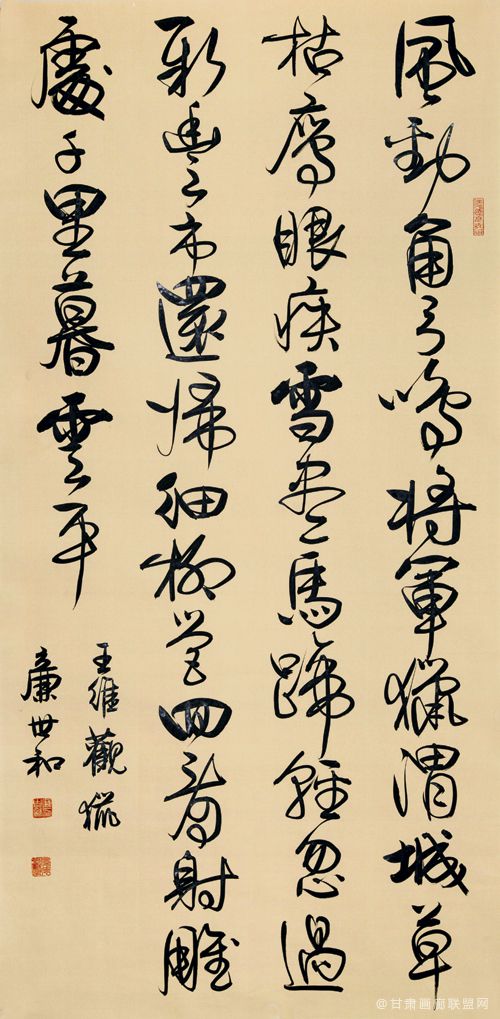 風勁角弓鳴将軍獵渭城草
枯鷹眼疾雪盡馬蹄輕忽過
新豐市還歸細柳營回看射雕
處千里暮雲平
王維觀獵
廉世和
@甘肃画廊联盟网